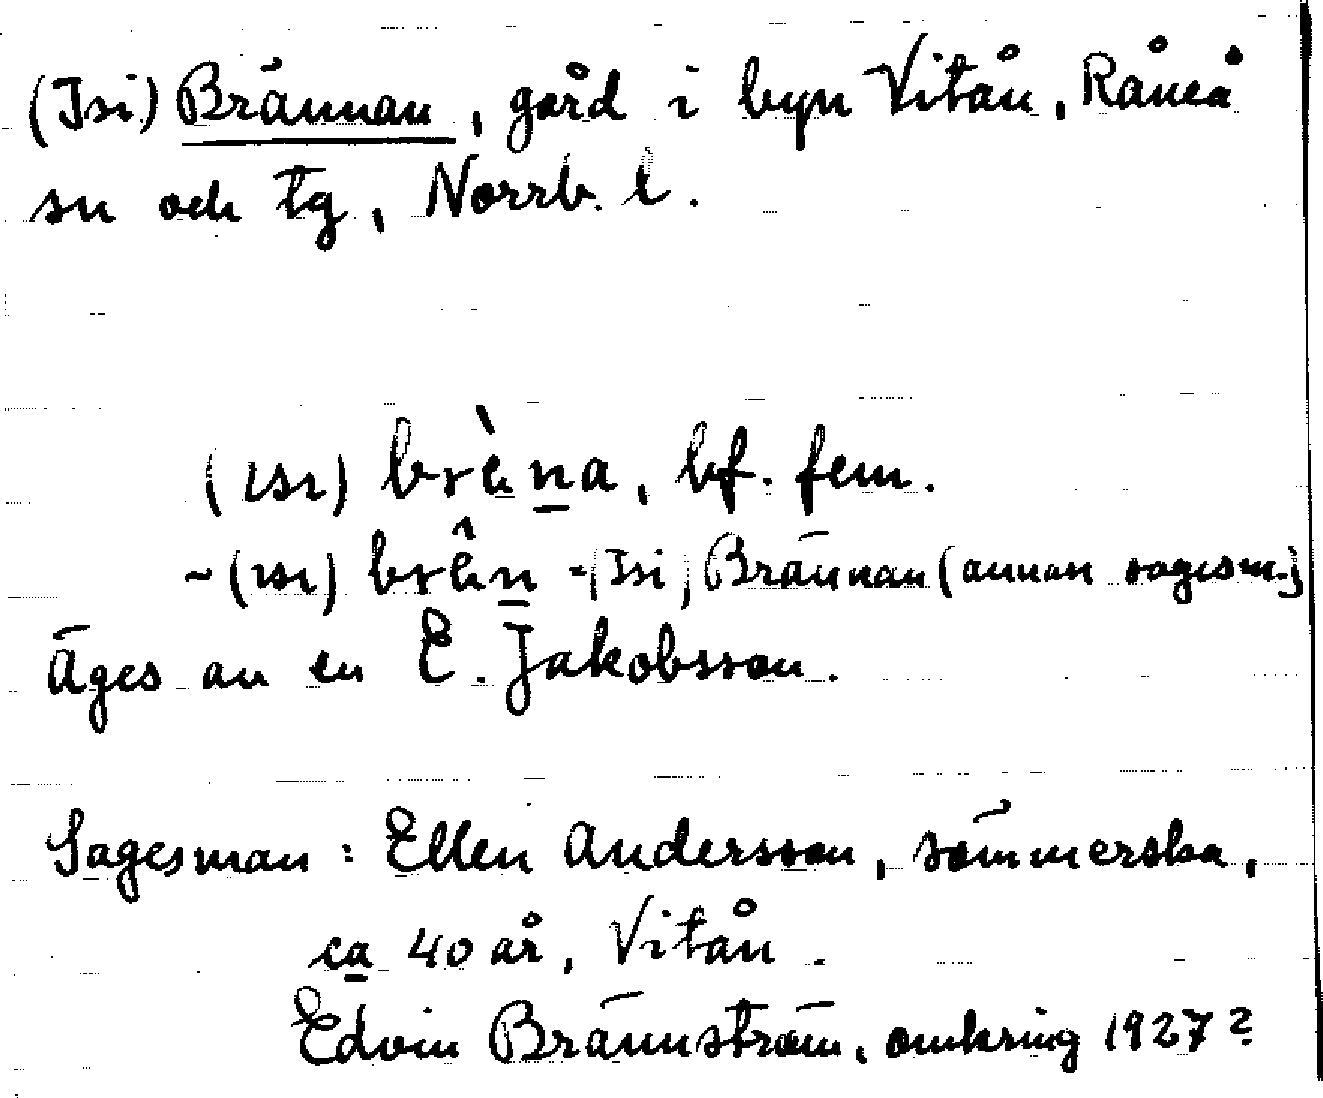 (Isi) Brännan, gård i byn Vitån, Råneå
sn och tg, Norrb. l.
(ɪsɪ) brὲna, bf. fem.
~ (ɪsɪ) brên = (Isi) Brännan (annan sagesm.)
Äges av en E. Jakobsson.
Sagesman: Ellen Andersson, sömmerska,
ca 40 år, Vitån.
Edvin Brännström, omkring 1927?